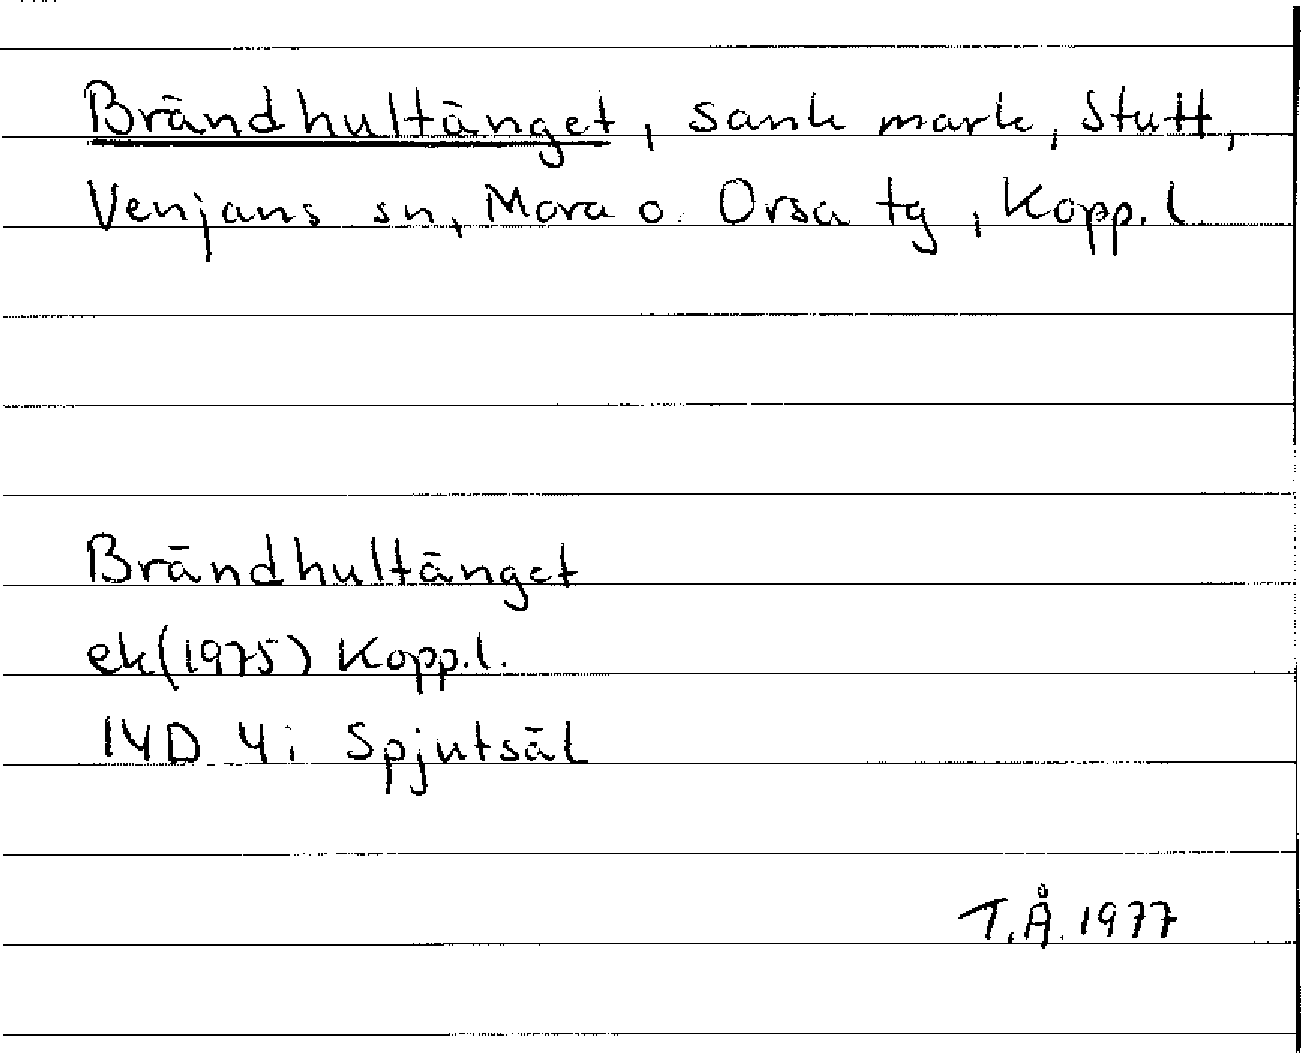 Brändhultänget, sank mark, Stutt,
Venjans sn, Mora o. Orsa tg, Kopp.l.
Brändhultänget
ek(1975) Kopp.l.
14D 4i Spjutsäl
T.Å. 1977